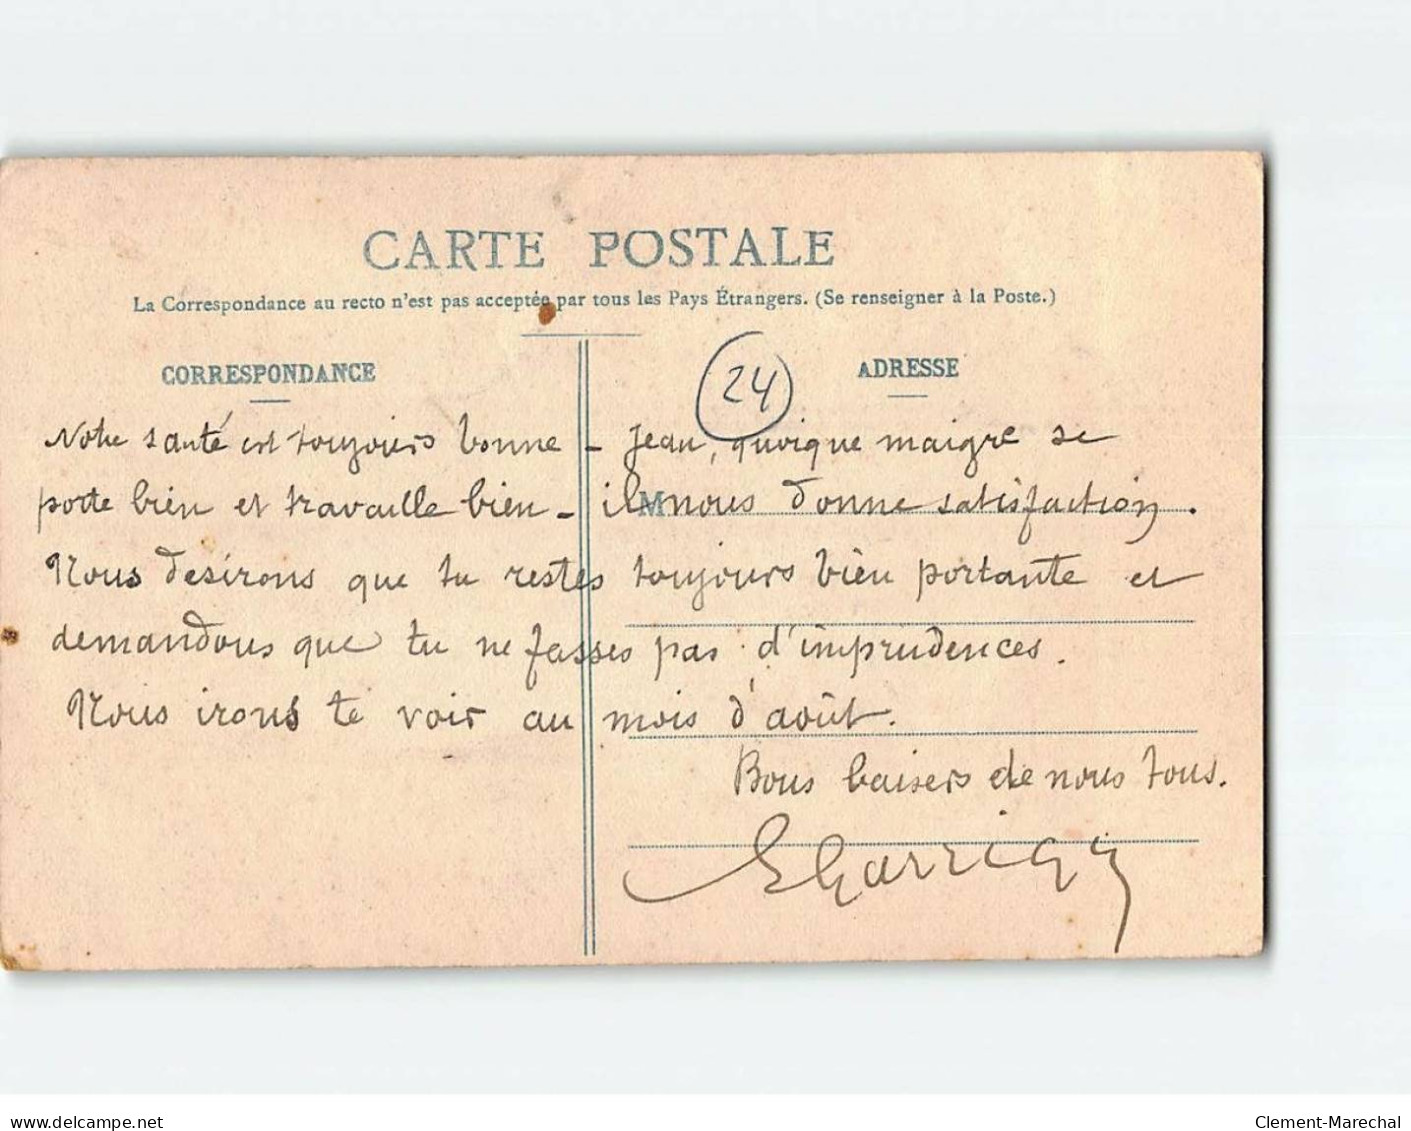 CARTE POSTALE
La Correspondance au recto n'est pas acceptée par tous les Pays Étrangers. (Se renseigner à la Poste.)
CORRESPONDANCE
24
ADRESSE
Notre santé est toujours bonne - Jean, quoique maigre se
porte bien et travaille bien - il nous donne satisfaction.
M
Nous désirons que tu restes toujours bien portante et
demandons que tu ne fasses pas d'imprudences.
Nous irons te voir au mois d'août.
Bons baisers de nous tous.
www.delcampe.net
Clement-Marechal